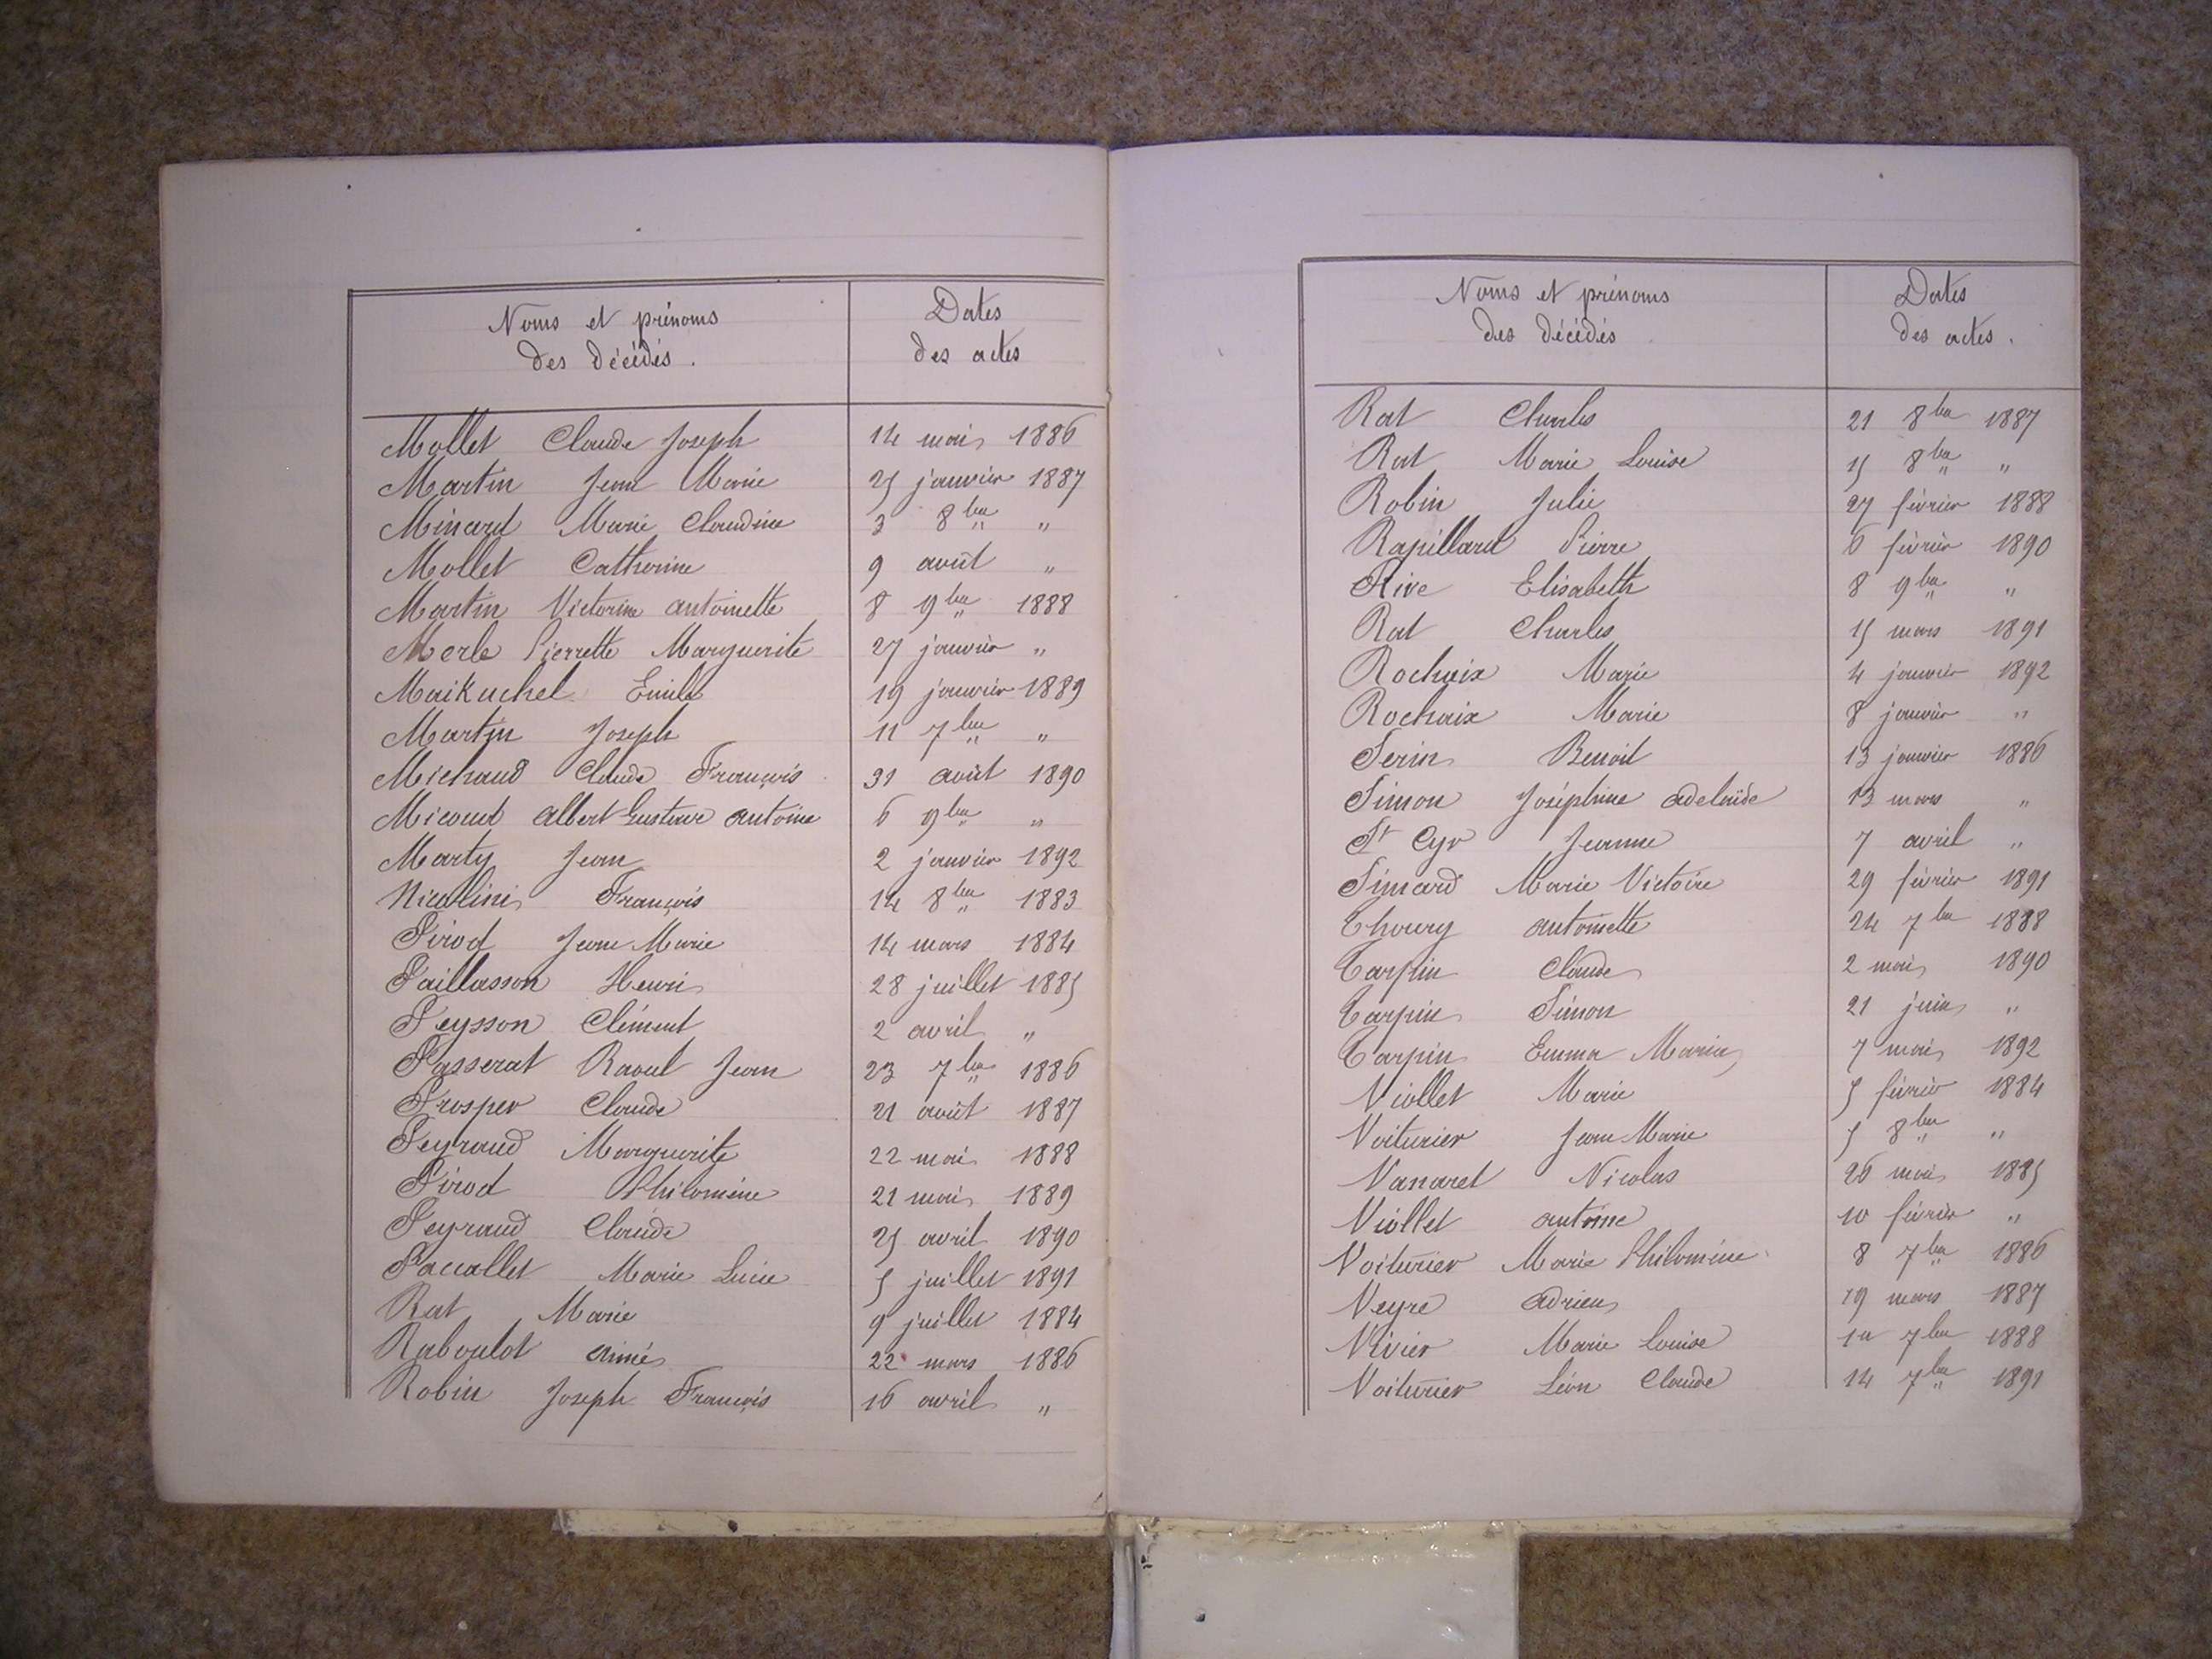 Noms et prénoms
des décédés.
Dates
des actes
Mollet Claude Joseph 14 mai 1886
Martin Jean Marie 25 janvier 1887
Minard Marie Claudine 3 8bre "
Mollet Catherine 9 août "
Martin Victorine antoinette 8 9bre 1888
Merle Pierrette Marguerite 27 janvier "
Maikuchel Emile 19 janvier 1889
Martin Joseph 11 7bre "
Michaud Claude François 31 août 1890
Micoud Albert Gustave antoine 6 9bre "
Marty Jean 2 janvier 1892
Nicolini François 14 8bre 1883
Pirod Jean Marie 14 mars 1884
Paillasson Henri 28 juillet 1885
Peysson Clément 2 avril "
Passerat Raoul Jean 23 7bre 1886
Prosper Claude 21 août 1887
Peyraud Marguerite 22 mai 1888
Pirod Philomène 21 mai 1889
Peyraud Claude 25 avril 1890
Paccallet Marie Lucie 5 juillet 1891
Rat Marie 9 juillet 1884
Raboulot aimé 22 mars 1886
Robin Joseph François 16 avril "
Noms et prénoms
des décédés
Dates
des actes.
Rat Charles 21 8bre 1887
Rat Marie Louise 15 8bre "
Robin Julie 27 février 1888
Rapillard Pierre 6 février 1890
Rive Elisabeth 8 9bre "
Rat Charles 15 mars 1891
Rochaix Marie 4 janvier 1892
Rochaix Marie 8 janvier "
Serin Benoit 13 janvier 1886
Simon Joséphine adelaïde 13 mars "
St Cyr Jeanne 7 avril "
Simard Marie Victoire 29 février 1891
Thoury antoinette 24 7bre 1888
Tarpin Claude 2 mai 1890
Tarpin Simon 21 juin "
Tarpin Emma Maria 7 mai 1892
Viollet Marie 5 février 1884
Voiturier Jean Marie 5 8bre "
Vanaret Nicolas 26 mai 1885
Viollet antoine 10 février "
Voiturier Marie Philomène 8 7bre 1886
Veyre adrien 19 mars 1887
Vivier Marie Louise 1er 7bre 1888
Voiturier Léon Claude 14 7bre 1891